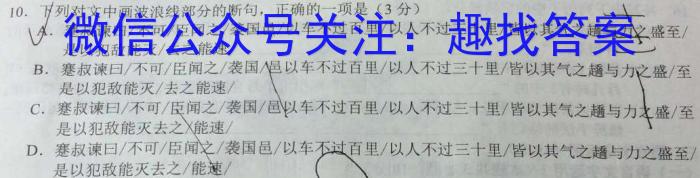 10. 下列对文中画波浪线部分的断句，正确的一项是（3 分）
微信公众号关注：趣找答案
A. 过百里/以人不过三十里/皆以其气之趫与力之盛至/
是以犯敌能灭去之/能速/
B. 蹇叔谏曰/不可/臣闻之/袭国/邑以车不过百里/以人不过三十里/皆以其气之趫与力之盛/至
是以犯敌能灭去/之能速/
C. 蹇叔谏曰/不可/臣闻之/袭国邑/以车不过百里/以人不过三十里/皆以其气之趫与力之盛/至
是以犯敌能灭去之/能速/
D. 蹇叔谏曰/不可/臣闻之/袭国邑/以车不过百里/以人不过三十里/皆以其气之趫与力之盛至/
是以犯敌能灭/去之/能速/